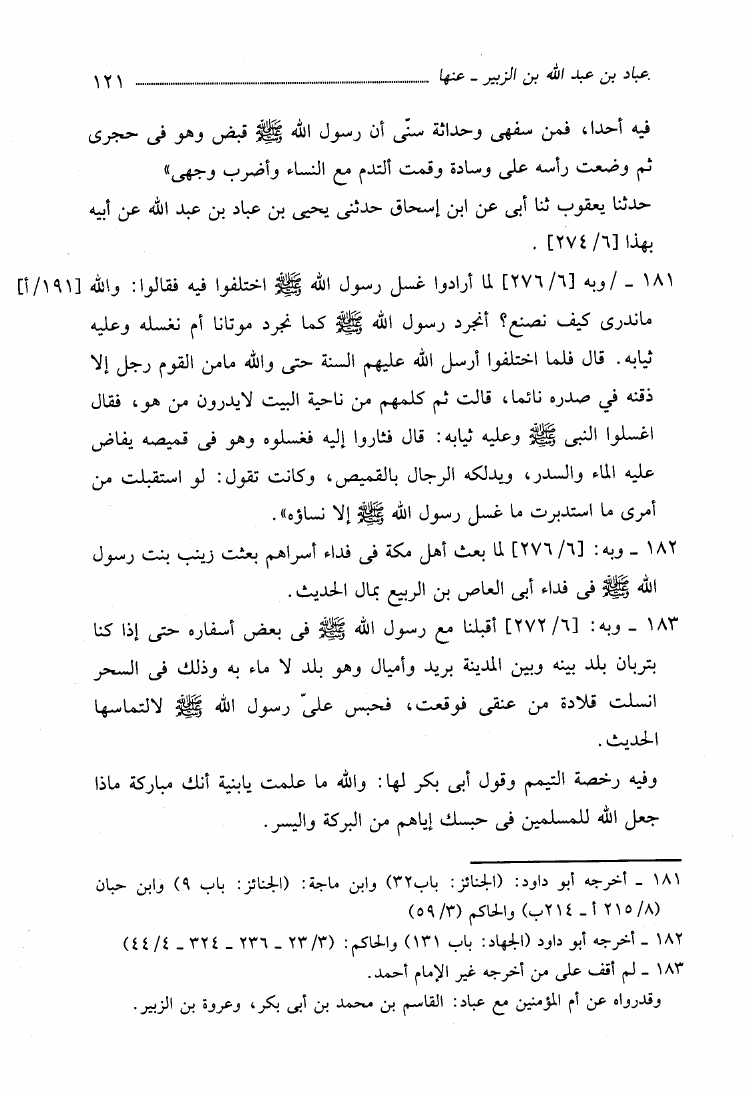 عباد بن عبد الله بن الزبير ـ عنها ........ ١٢١
فيه أحدا، فمن سفهى وحداثة سنّى أن رسول الله ﷺ قبض وهو فى حجرى
ثم وضعت رأسه على وسادة وقمت ألتدم مع النساء وأضرب وجهى»
حدثنا يعقوب ثنا أبى عن ابن إسحاق حدثنى يحيى بن عباد بن عبد الله عن أبيه
بهذا [٦/ ٢٧٤] .
١٨١ ـ / وبه [٦/ ٢٧٦] لما أرادوا غسل رسول الله ﷺ اختلفوا فيه فقالوا: والله [١٩١/أ]
ماندرى كيف نصنع؟ أنجرد رسول الله ﷺ كما نجرد موتانا أم نغسله وعليه
ثيابه. قال فلما اختلفوا أرسل الله عليهم السنة حتى والله مامن القوم رجل إلا
ذقنه في صدره نائما، قالت ثم كلمهم من ناحية البيت لايدرون من هو، فقال
اغسلوا النبى ﷺ وعليه ثيابه: قال فثاروا إليه فغسلوه وهو فى قميصه يفاض
عليه الماء والسدر، ويدلكه الرجال بالقميص، وكانت تقول: لو استقبلت من
أمرى ما استدبرت ما غسل رسول الله ﷺ إلا نساؤه».
١٨٢ ـ وبه: [٦/ ٢٧٦] لما بعث أهل مكة فى فداء أسراهم بعثت زينب بنت رسول
الله ﷺ فى فداء أبى العاص بن الربيع بمال الحديث.
١٨٣ ـ وبه: [٦/ ٢٧٢] أقبلنا مع رسول الله ﷺ فى بعض أسفاره حتى إذا كنا
بتربان بلد بينه وبين المدينة بريد وأميال وهو بلد لا ماء به وذلك فى السحر
انسلت قلادة من عنقى فوقعت، فحبس علىّ رسول الله ﷺ لالتماسها
الحديث.
وفيه رخصة التيمم وقول أبى بكر لها: والله ما علمت يابنية أنك مباركة ماذا
جعل الله للمسلمين فى حبسك إياهم من البركة واليسر.
١٨١ ـ أخرجه أبو داود: (الجنائز: باب٣٢) وابن ماجة: (الجنائز: باب ٩) وابن حبان
(٨/ ٢١٥ أ ـ ٢١٤ب) والحاكم (٣/ ٥٩)
١٨٢ ـ أخرجه أبو داود (الجهاد: باب ١٣١) والحاكم: (٣/ ٢٣ ـ ٢٣٦ ـ ٣٢٤ ـ ٤/ ٤٤)
١٨٣ ـ لم أقف على من أخرجه غير الإمام أحمد.
وقدرواه عن أم المؤمنين مع عباد: القاسم بن محمد بن أبى بكر، وعروة بن الزبير.